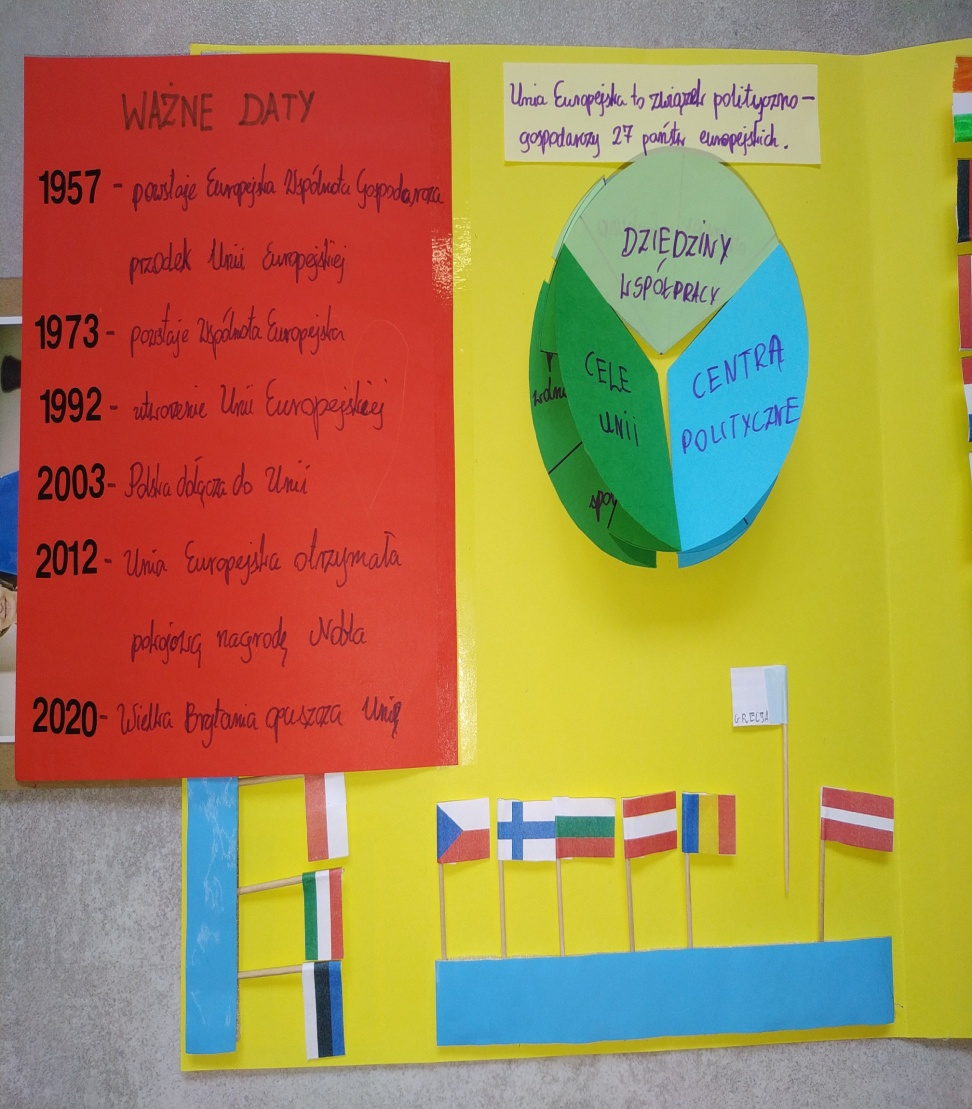 WAŻNE DATY
1957 - powstaje Europejska Wspólnota Gospodarcza
przodek Unii Europejskiej
1973 - powstaje Wspólnota Europejska
1992 - utworzenie Unii Europejskiej
2003 - Polska dołącza do Unii
2012 - Unia Europejska otrzymała
pokojową nagrodę Nobla
2020 - Wielka Brytania opuszcza Unię
Unia Europejska to związek polityczno-
gospodarczy 27 państw europejskich.
DZIEDZINY
WSPÓŁPRACY
CELE
UNII
CENTRA
POLITYCZNE
GRECJA